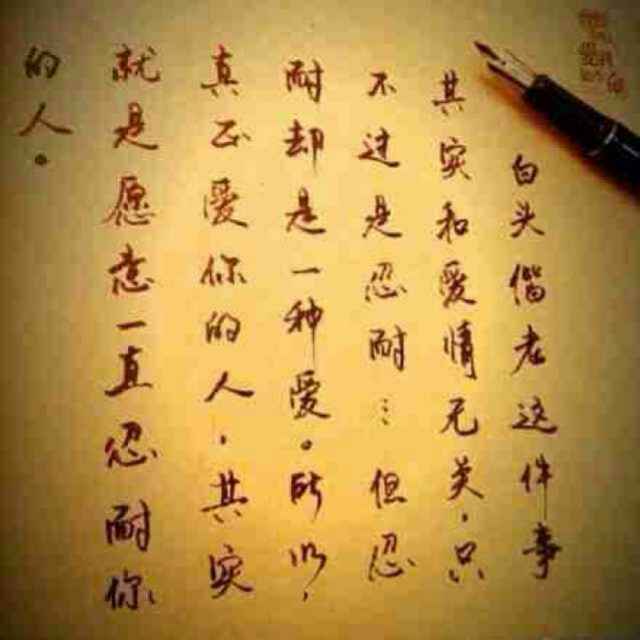 白头偕老这件事
其实和爱情无关,只
不过是忍耐…但忍
耐却是一种爱。所以,
真正爱你的人,其实
就是愿意一直忍耐你
的人。